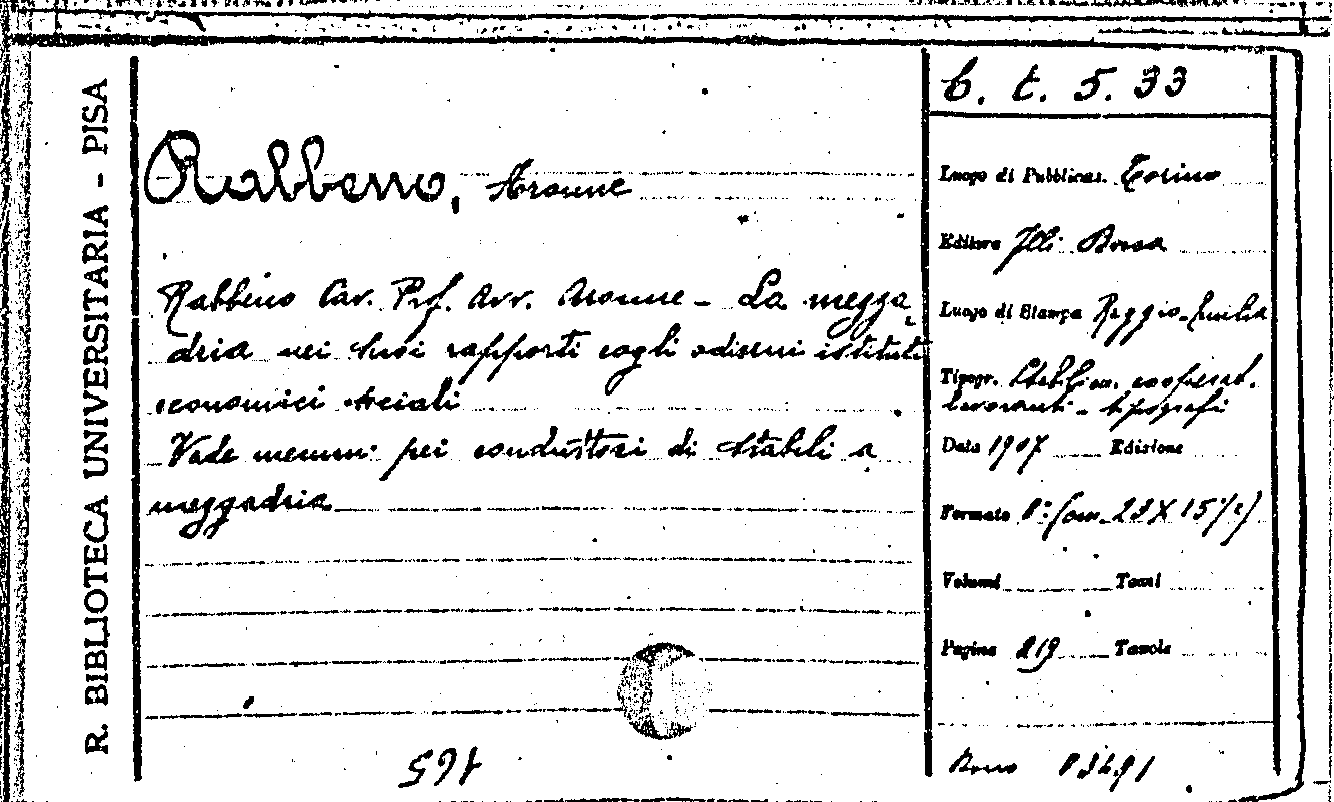 R. BIBLIOTECA UNIVERSITARIA - PISA
Rabbeno, Aronne
Rabbeno Cav. Prof. Avv. Aronne - La mezza
dria nei suoi rapporti cogli odierni istituti
economici sociali
Vade mecum pei conduttori di stabili a
mezzadria
165
C. t. 5. 33
Luogo di Pubblicaz. Torino
Editore Flli Bocca
Luogo di Stampa Reggio-Emilia
Tipogr. Stabilim. cooperat.
lavoranti - tipografi
Data 1907 Edizione
Formato 8° (cm. 23 X 15 1/2)
Volumi Tomi
Pagine 219 Tavole